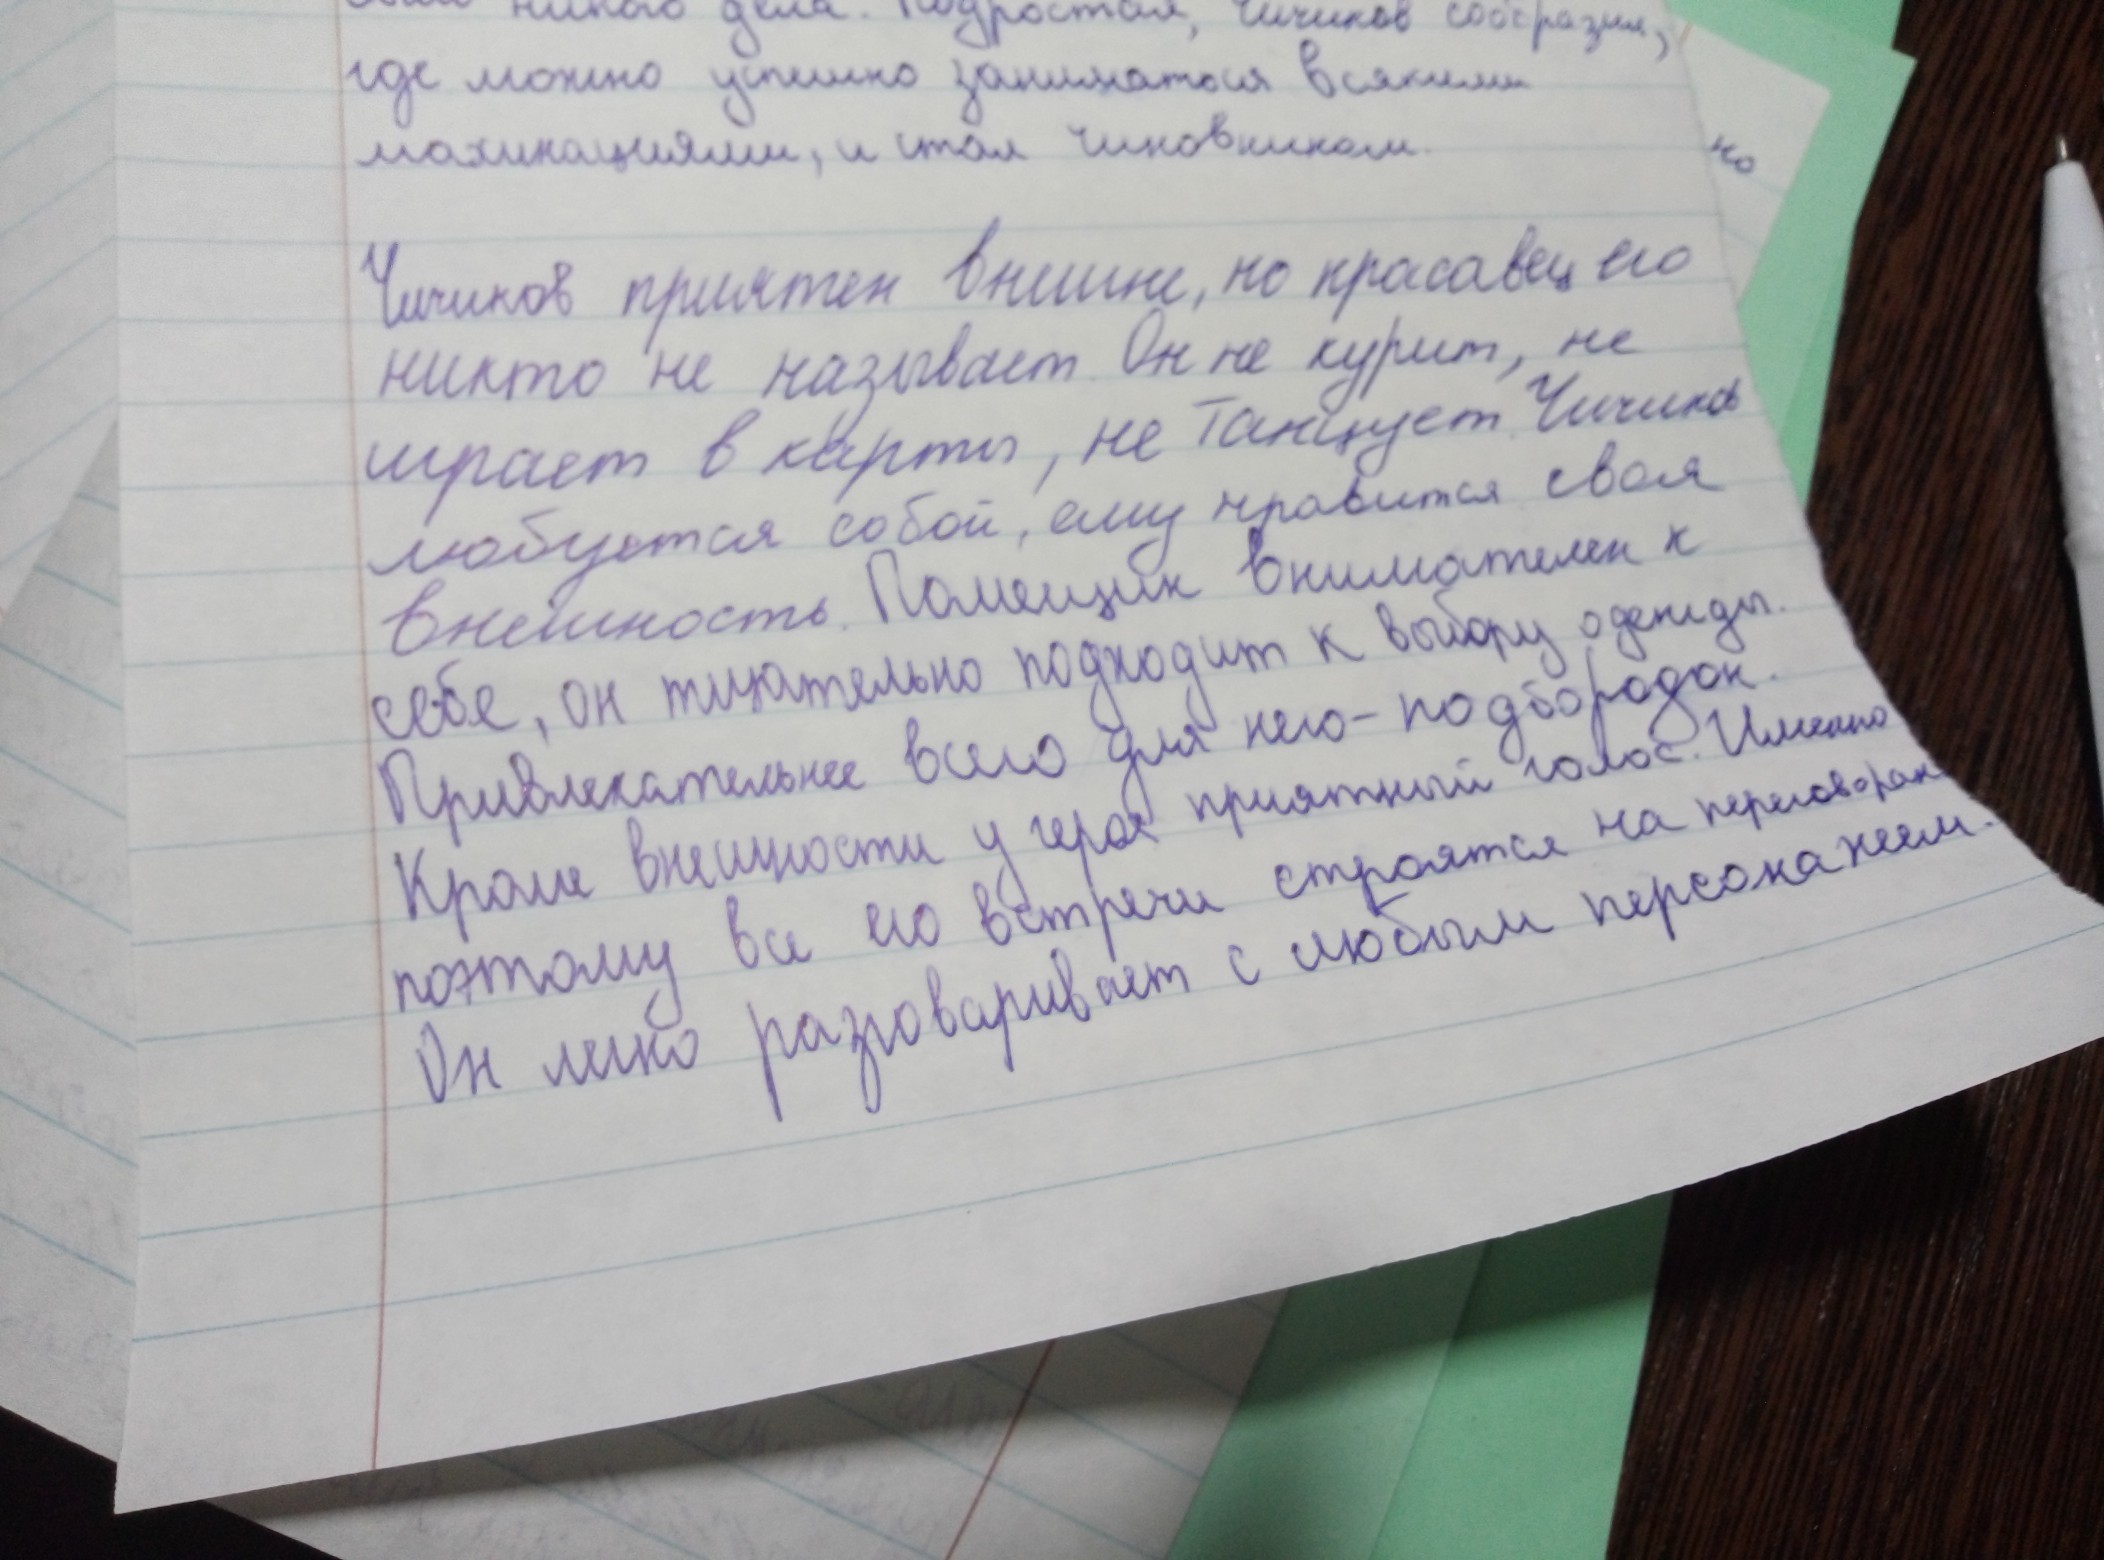 никого дела. Подростая, Чичиков сообразил,
где можно успешно заниматься всякими
махинациями, и стал чиновником.
но
Чичиков приятен внешне, но красавец его
никто не называет. Он не курит, не
играет в карты, не танцует. Чичиков
любуется собой, ему нравится своя
внешность. Помещик внимателен к
себе, он тщательно подходит к выбору одежды.
Привлекательнее всего для него - подбородок.
Кроме внешности у героя приятный голос. Именно
поэтому все его встречи строятся на переговорах
Он легко разговаривает с любым персонажем.